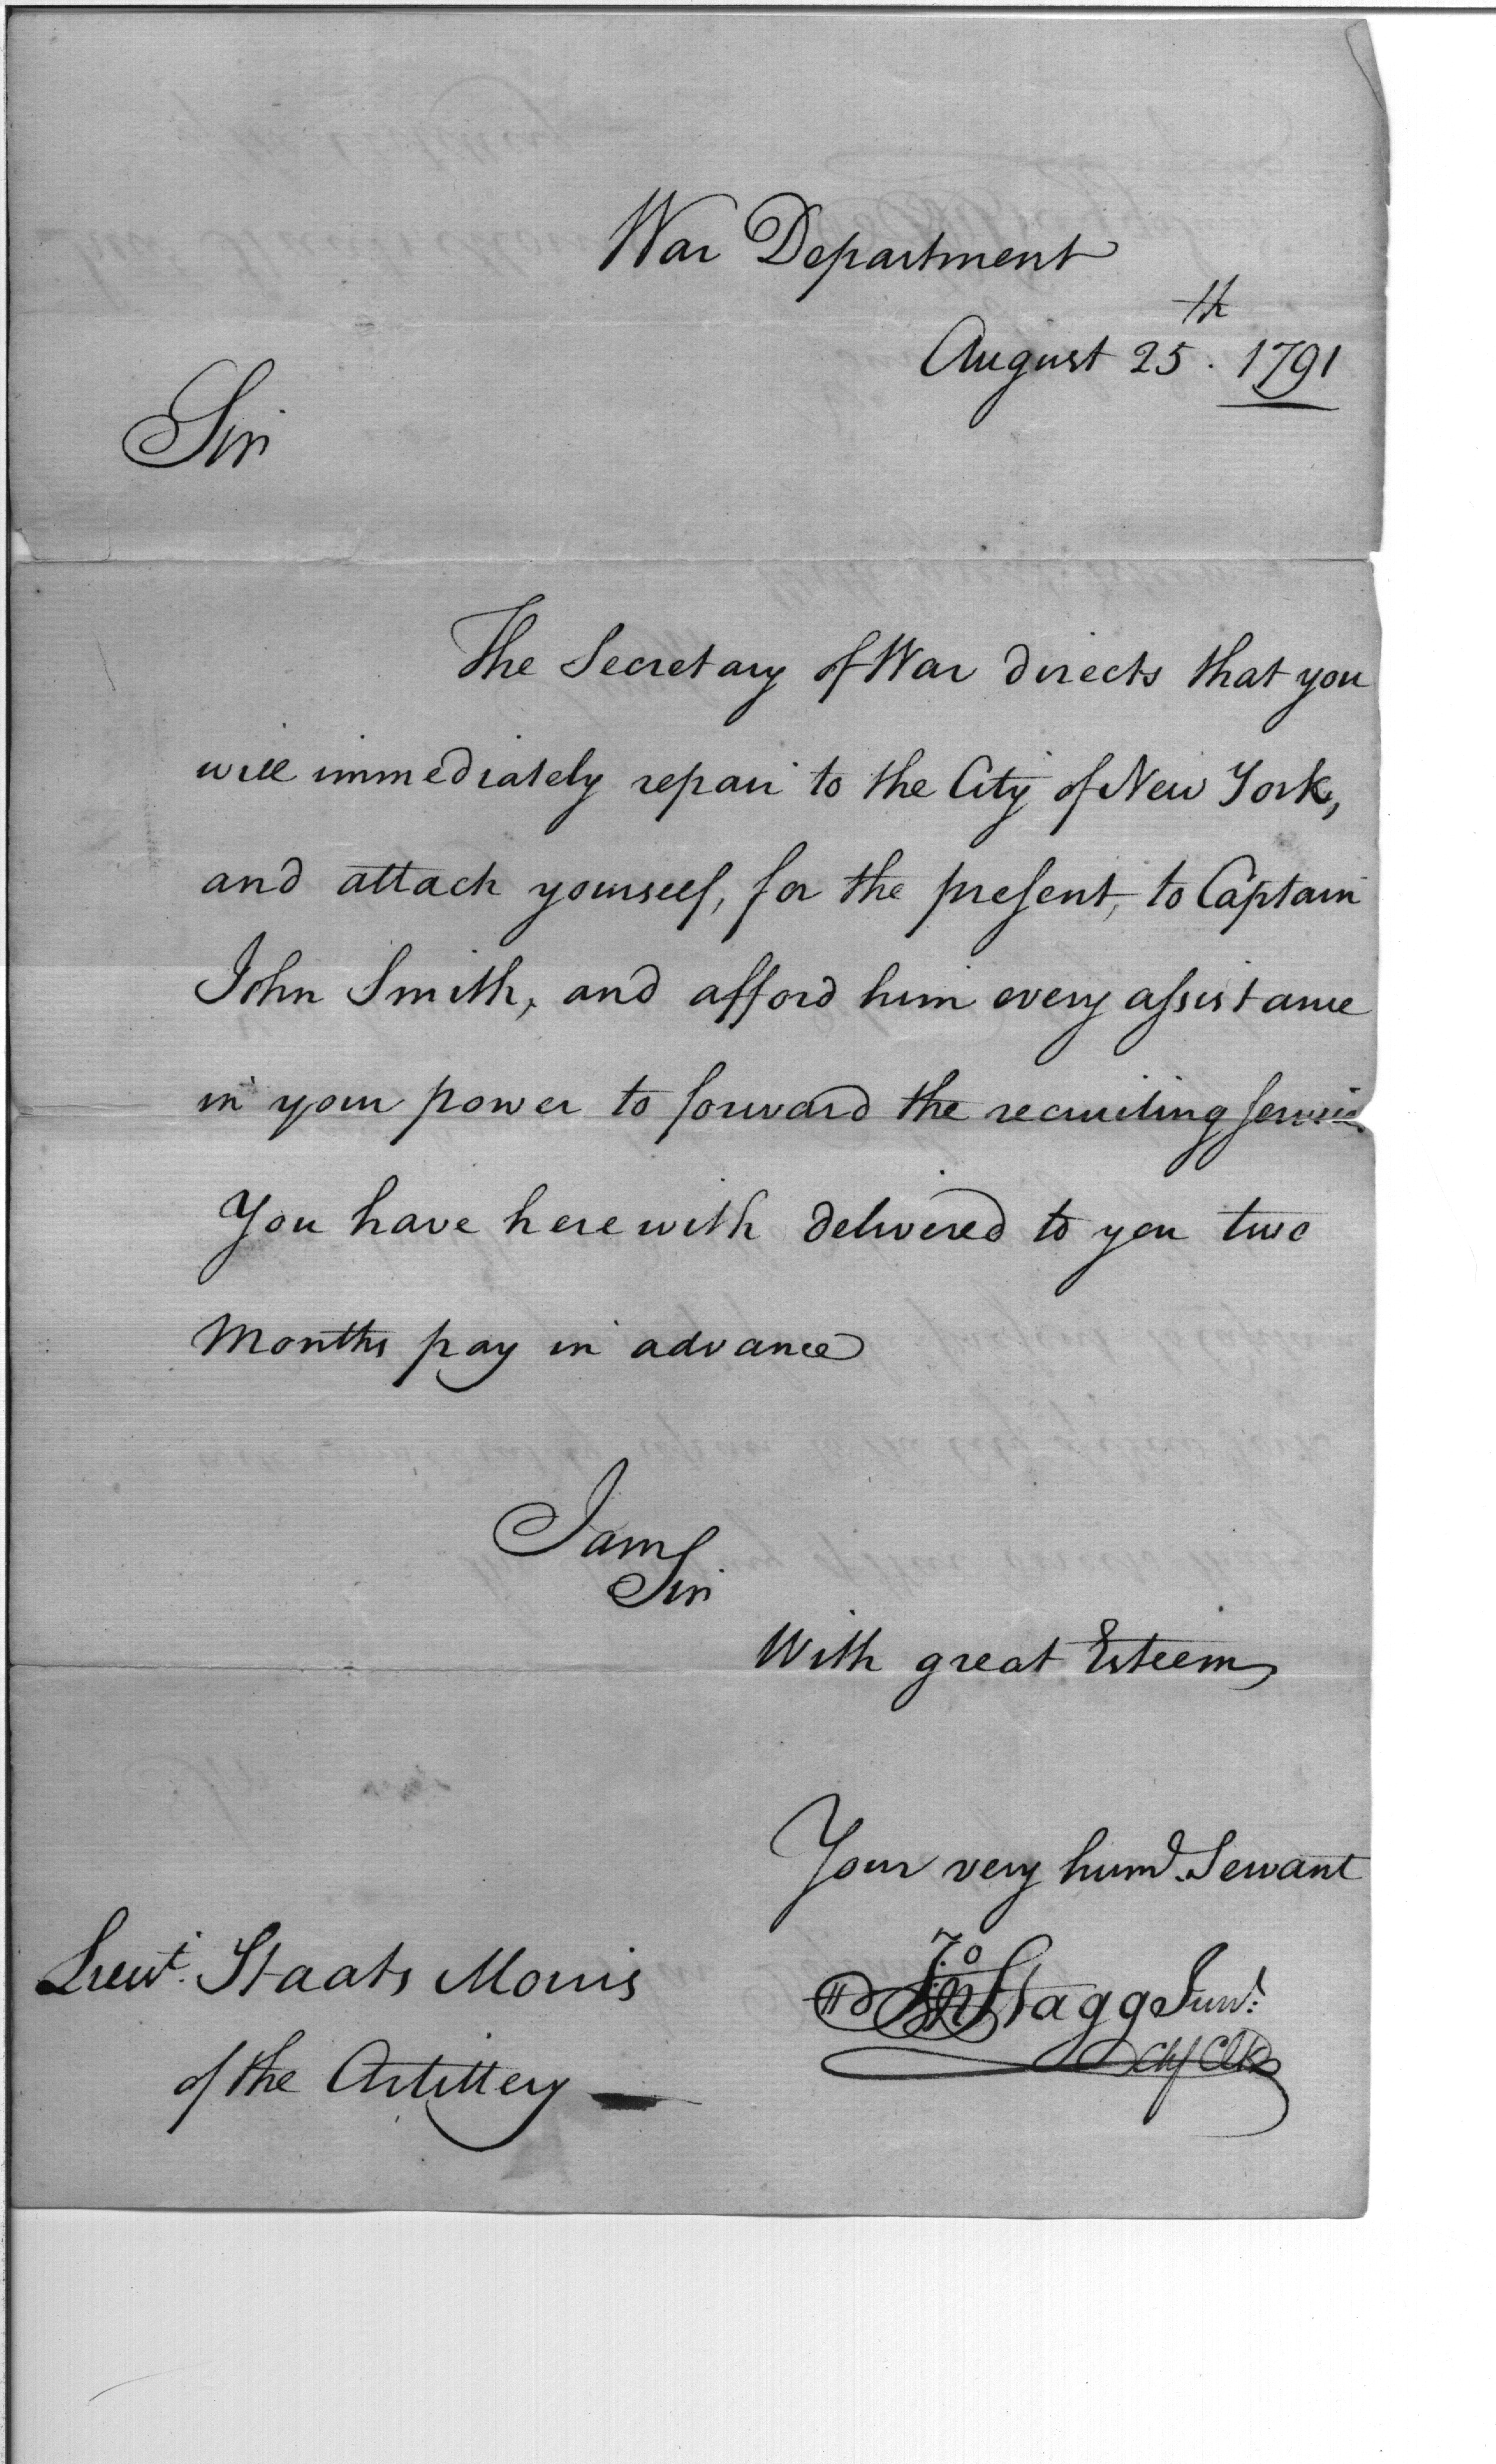 War Department
August 25th. 1791
Sir
The Secretary of War directs that you
will immediately repair to the City of New York,
and attach yourself, for the present, to Captain
John Smith, and afford him every assistance
in your power to forward the recruiting service
You have herewith delivered to you two
Months pay in advance
I am
Sir
With great Esteem
Your very hum'l. Servant
Jno Stagg Junr:
Chf Clk
Lieut. Staats Morris
of the Artillery